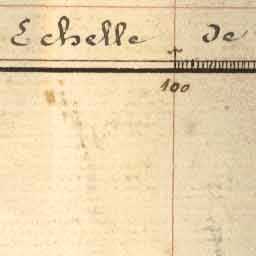 Echelle de
100